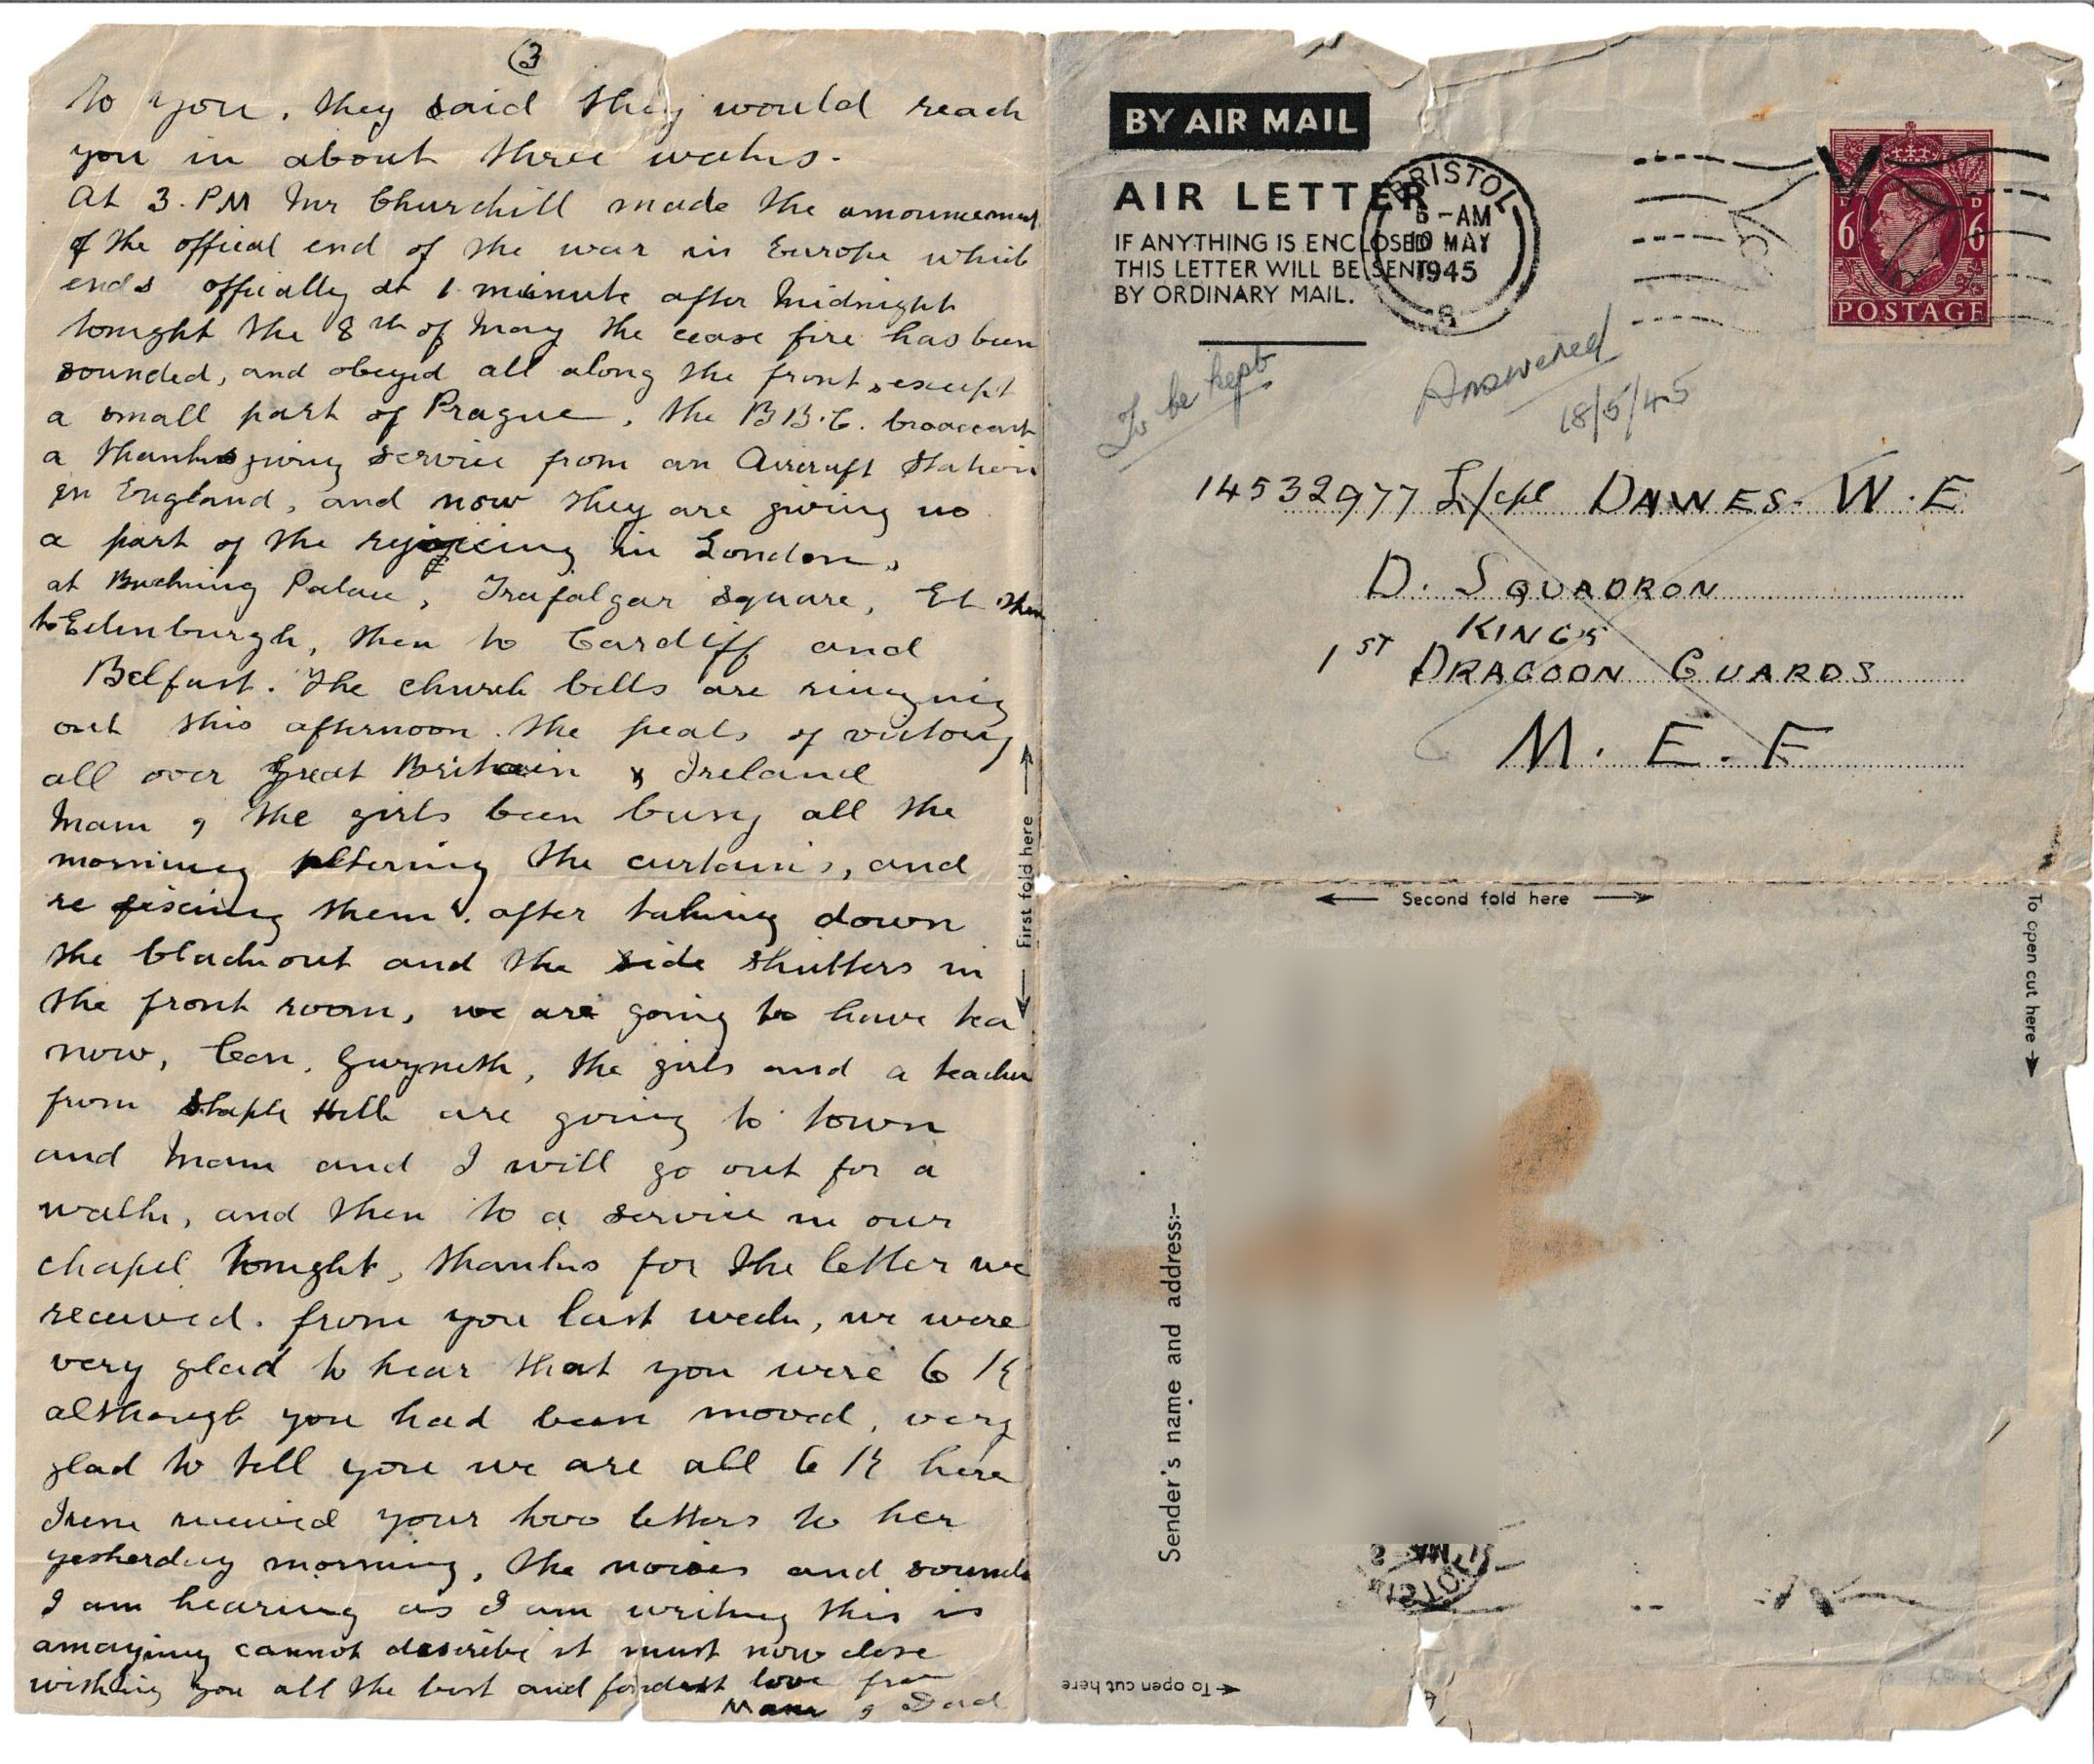 3
to you. they said they would reach
you in about three weeks.
At 3. PM Mr Churchill made the announcement
of the offical end of the war in Europe which
ends offically at 1 minute after Midnight
tonight the 8th of May the cease fire has been
sounded, and obeyed all along the front, except
a small part of Prague. the B.B.C. broadcast
a thanksgiving service from an Aircraft Station
in England, and now they are giving us
a part of the rejoicing in London,
at Bucking Palace, Trafalgar square, Et then
to Edinburgh, then to Cardiff and
Belfast. The church bells are ringing
out this afternoon. the peals of victory
all over Great Britain & Ireland
Mam & the girls been busy all the
morning altering the curtains, and
re fixing them. after taking down
the blackout and the side shutters in
the front room, we are going to have tea
now, Con, Gwyneth, the girls and a teacher
from Staple Hill are going to town
and Mam and I will go out for a
walk, and then to a service in our
chapel tonight, thanks for the letter we
received. from you last week, we were
very glad to hear that you were O K
although you had been moved, very
glad to tell you we are all O K here
Irene received your two letters to her
yesterday morning, the noises and sounds
I am hearing as I am writing this is
amazing cannot describe it must now close
wishing you all the best and fondest love from
Mam & Dad
First fold here
BY AIR MAIL
AIR LETTER
IF ANYTHING IS ENCLOSED
THIS LETTER WILL BE SENT
BY ORDINARY MAIL.
BRISTOL
-AM
10 MAY
1945
6 D 6 D
POSTAGE
To be kept
Answered
18/5/45
14532977 L/cpl DAWES. W. E
D. SQUADRON
KINGS
1ST DRAGOON GUARDS
M. E. F
Second fold here
To open cut here
Sender's name and address:-
To open cut here